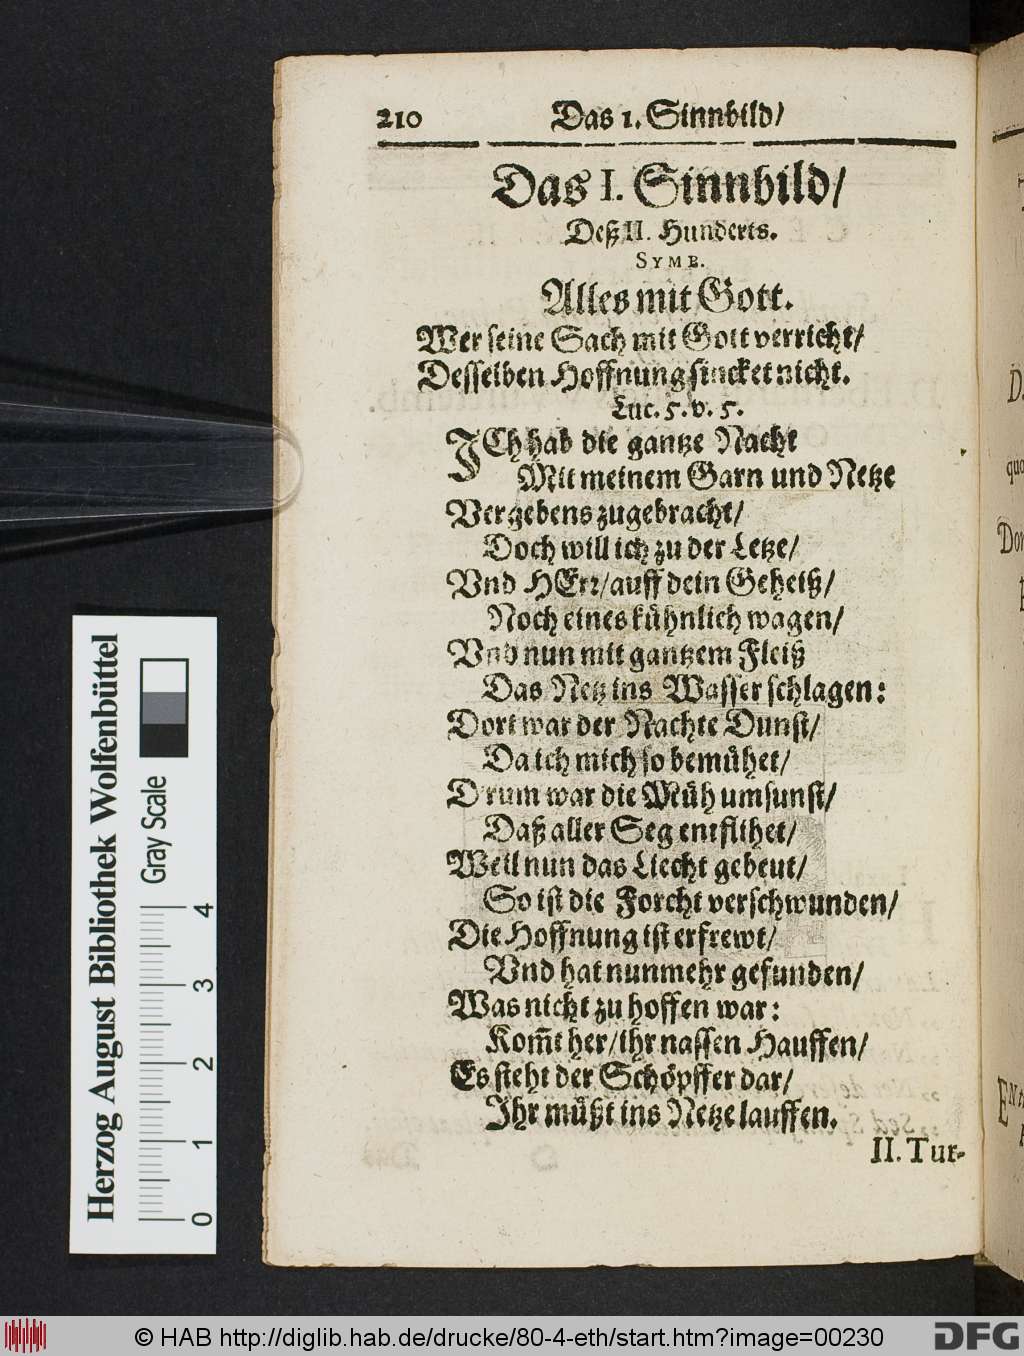 210 Das 1. Sinnbild/
Das I. Sinnbild/
Deß II. Hunderts.
SYMB.
Alles mit Gott.
Wer seine Sach mit Gott verricht/
Desselben Hoffnung sincket nicht.
Luc. 5. v. 5.
ICh hab die gantze Nacht
Mit meinem Garn und Netze
Vergebens zugebracht/
Doch will ich zu der Letze/
Vnd HErr/auff dein Geheiß/
Noch eines kühnlich wagen/
Vnd nun mit gantzem Fleiß
Das Netz ins Wasser schlagen:
Dort war der Nachte Dunst/
Da ich mich so bemühet/
Drum war die Müh umsunst/
Daß aller Seg entflihet/
Weil nun das Liecht gebeut/
So ist die Forcht verschwunden/
Die Hoffnung ist erfrewt/
Vnd hat nunmehr gefunden/
Was nicht zu hoffen war:
Kom̃t her/ihr nassen Hauffen/
Es steht der Schöpffer dar/
Ihr müßt ins Netze lauffen.
II. Tur-
Herzog August Bibliothek Wolfenbüttel
Gray Scale
0 1 2 3 4
© HAB http://diglib.hab.de/drucke/80-4-eth/start.htm?image=00230
DFG